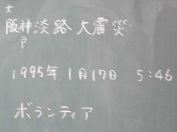 大
阪神淡路大震災
戸
1995年1月17日 5:46
ボランティア